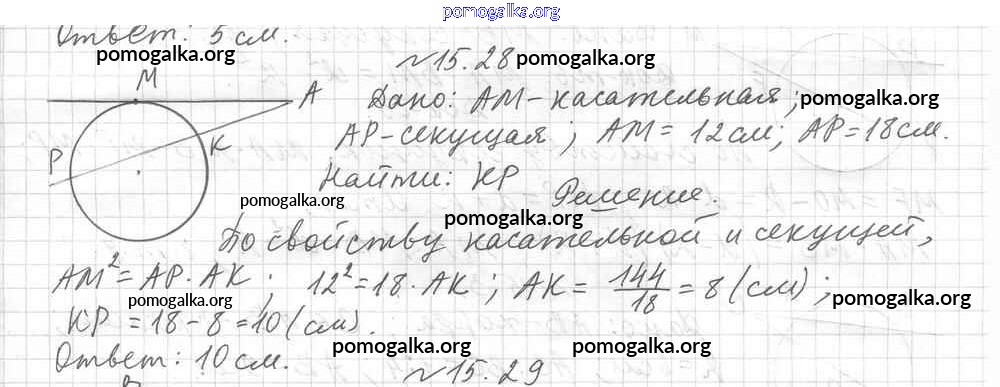 pomogalka.org
Ответ: 5 см.
pomogalka.org
№15.28 pomogalka.org
M
A
Дано: AM - касательная; pomogalka.org
P
K
AP - секущая; AM = 12 см; AP = 18 см.
Найти: KP
pomogalka.org
Решение.
pomogalka.org
По свойству касательной и секущей,
AM² = AP · AK; 12² = 18 · AK; AK = 144/18 = 8 (см);
pomogalka.org
pomogalka.org
KP = 18 - 8 = 10 (см).
Ответ: 10 см.
pomogalka.org
pomogalka.org
№15.29